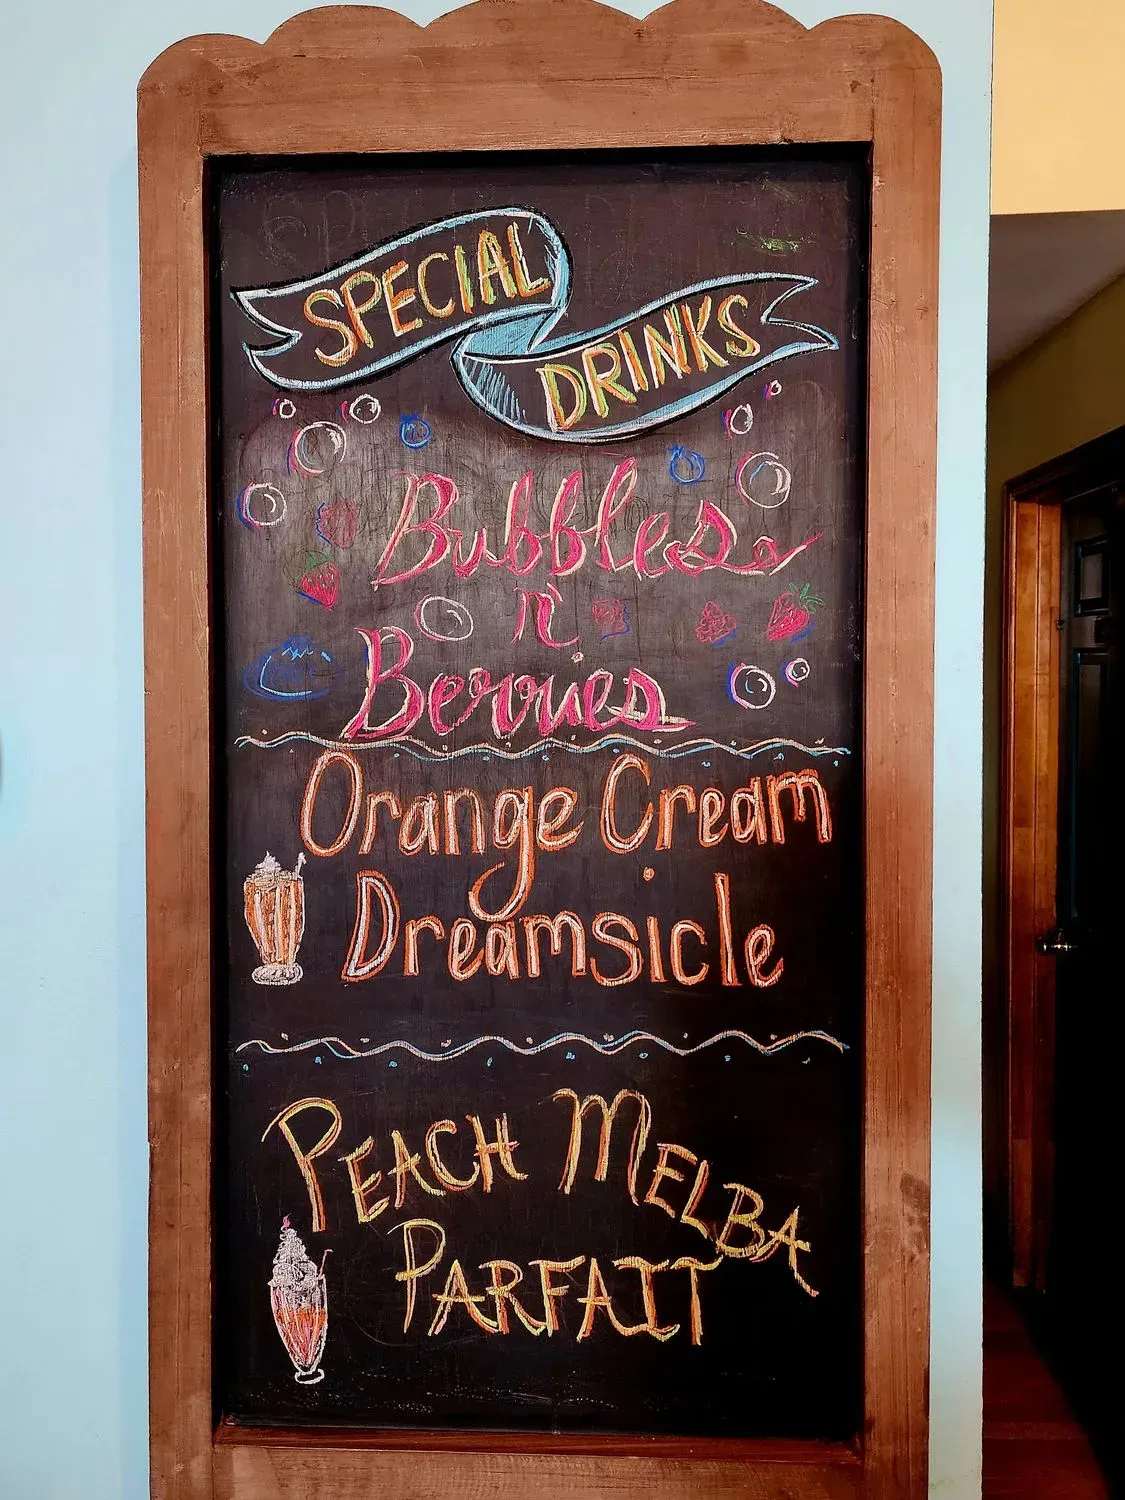 SPECIAL
DRINKS
Bubbles
n'
Berries
Orange Cream
Dreamsicle
PEACH MELBA
PARFAIT